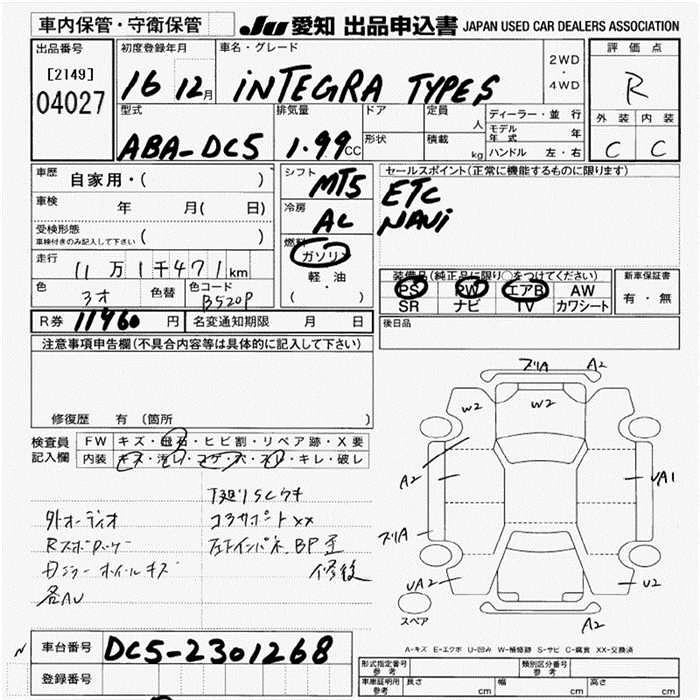 車内保管・守衛保管 JU 愛知 出品申込書 JAPAN USED CAR DEALERS ASSOCIATION
出品番号 初度登録年月 車名・グレード 2WD・4WD 評価点
[2149] 04027 16 12月 iNTEGRA TYPES R
型式 排気量 ドア 定員 人 ディーラー・並行 外装 内装
ABA-DC5 1.99CC 形状 積載 kg モデル年式 年 ハンドル 左・右 C C
車歴 自家用・( ) シフト MT5 セールスポイント(正常に機能するものに限ります)
車検 年 月( 日) 冷房 AC ETC
受検形態 車検付きのみ記入して下さい ( ) NAVi
燃料 ガソリン
走行 11万1千471km 軽・油 装備品(純正品に限り○をつけてください) 新車保証書
PS PW エアB AW 有・無
色 3オ 色替 色コード B520P ( ・ ) SR ナビ TV カワシート
R券 11960円 名変通知期限 月 日 後日品
注意事項申告欄(不具合内容等は具体的に記入して下さい)
修復歴 有 (箇所 )
検査員 FW キズ・飛石・ヒビ割・リペア跡・X要
記入欄 内装 キズ・汚レ・コゲ・穴・スレ・キレ・破レ
外オーディオ コアサポートxx
各AU 修後
ズリA A2
W2 W2
A2 UA1
ズリA
UA2 U2
スペア A2
A-キズ E-エクボ U-凹み W-補修跡 S-サビ C-腐食 XX-交換済
車台番号 DC5-2301268
登録番号
形式指定番号 参考 類別区分番号 参考
車庫証明用 参考 長さ cm 幅 cm 高さ cm